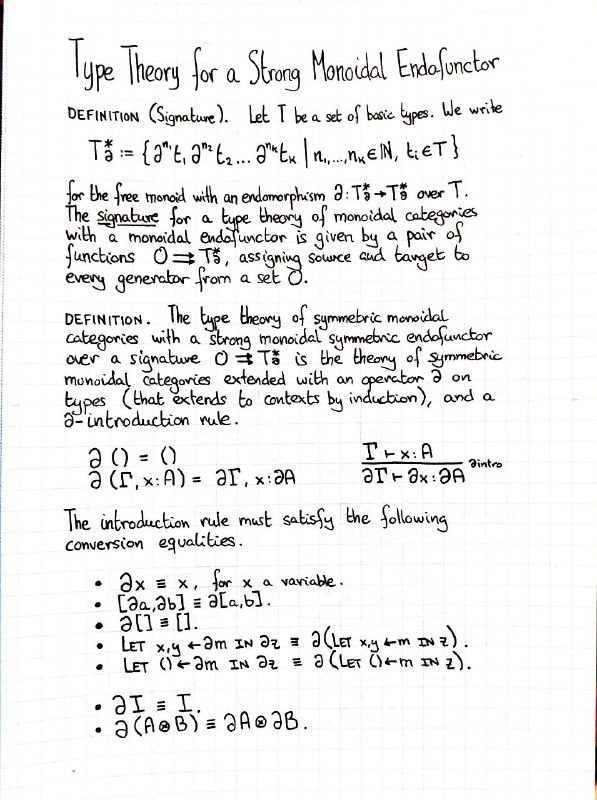 Type Theory for a Strong Monoidal Endofunctor
DEFINITION (Signature). Let T be a set of basic types. We write
T*∂ := {∂ⁿ¹t₁ ∂ⁿ²t₂ ... ∂ⁿᵏtₖ | n₁,...,nₖ ∈ ℕ, tᵢ ∈ T}
for the free monoid with an endomorphism ∂: T*∂ → T*∂ over T.
The signature for a type theory of monoidal categories
with a monoidal endofunctor is given by a pair of
functions O ⇉ T*∂, assigning source and target to
every generator from a set O.
DEFINITION. The type theory of symmetric monoidal
categories with a strong monoidal symmetric endofunctor
over a signature O ⇉ T*∂ is the theory of symmetric
monoidal categories extended with an operator ∂ on
types (that extends to contexts by induction), and a
∂-introduction rule.
∂ () = ()
∂ (Γ, x:A) = ∂Γ, x:∂A
Γ ⊢ x: A
∂Γ ⊢ ∂x: ∂A ∂intro
The introduction rule must satisfy the following
conversion equalities.
• ∂x ≡ x, for x a variable.
• [∂a,∂b] ≡ ∂[a,b].
• ∂[] ≡ [].
• LET x,y ← ∂m IN ∂z ≡ ∂(LET x,y ← m IN z).
• LET () ← ∂m IN ∂z ≡ ∂(LET () ← m IN z).
• ∂I ≡ I.
• ∂(A⊗B) ≡ ∂A⊗∂B.